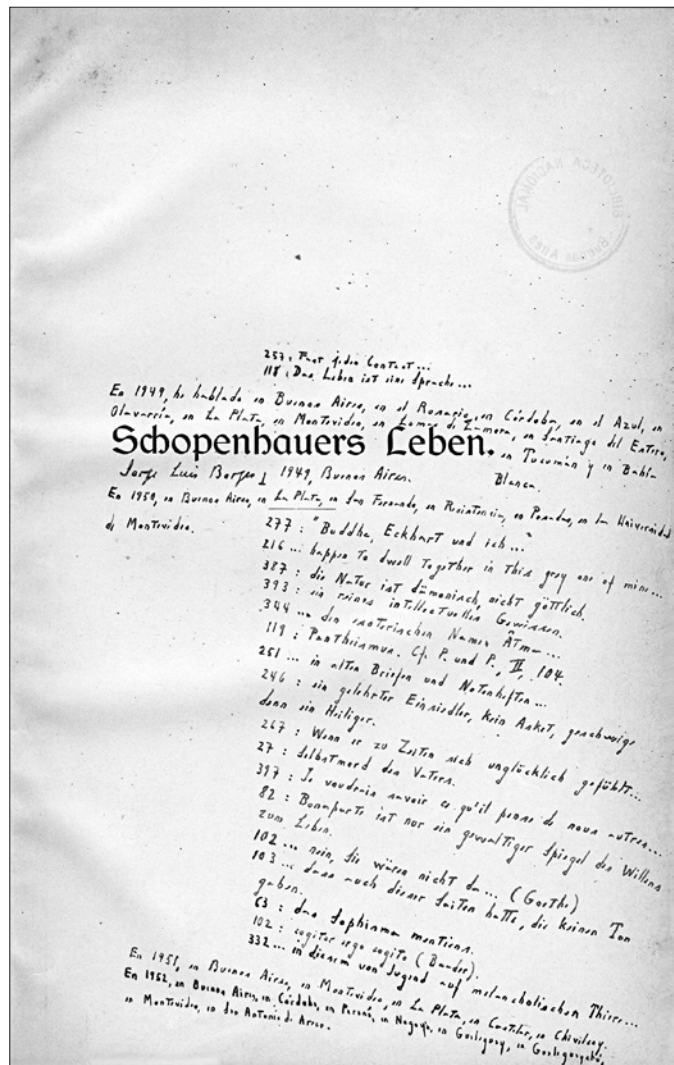 BIBLIOTECA NACIONAL
Buenos Aires
257: Fast jeder Contact...
118: Das Leben ist eine Sprache...
En 1949, he hablado en Buenos Aires, en el Rosario, en Córdoba, en el Azul, en
Olavarría, en La Plata, en Montevideo, en Lomas de Zamora, en Santiago del Estero,
en Tucumán y en Bahía
Blanca.
Schopenhauers Leben.
Jorge Luis Borges 1949, Buenos Aires.
En 1950, en Buenos Aires, en La Plata, en San Fernando, en Resistencia, en Posadas, en la Universidad
de Montevideo.
277: "Buddha, Eckhart und ich..."
216... happen to dwell together in this grey one of mine...
387: die Natur ist dämonisch, nicht göttlich.
393: ein reines intellectuelles Gewissen.
344... den esoterischen Namen Âtma...
119: Pantheismus. Cf. P. und P., II, 104.
251... in alten Briefen und Notenheften...
246: ein gelehrter Einsiedler, kein Asket, geschweige
denn ein Heiliger.
267: Wenn er zu Zeiten sich unglücklich gefühlt...
27: Selbstmord des Vaters.
397: Je voudrais savoir ce qu'il pense de nous autres...
82: Bonaparte ist nur ein gewaltiger Spiegel des Willens
zum Leben.
102... nein, Sie wären nicht da... (Goethe)
103... dass auch dieser Saiten hatte, die keinen Ton
gaben.
63: das Sophisma mentiens.
102: cogitor ergo cogito (Baader).
332... in diesem von Jugend auf melancholischen Thiere...
En 1951, en Buenos Aires, en Montevideo, en La Plata, en Castelar, en Chivilcoy.
En 1952, en Buenos Aires, en Córdoba, en Paraná, en Nogoyá, en Gualeguay, en Gualeguaychú,
en Montevideo, en San Antonio de Areco.